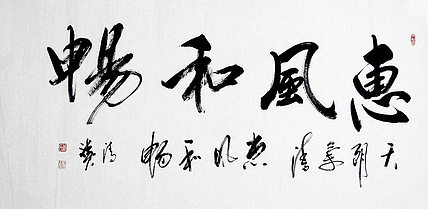 惠風和暢
天朗氣清惠风和暢